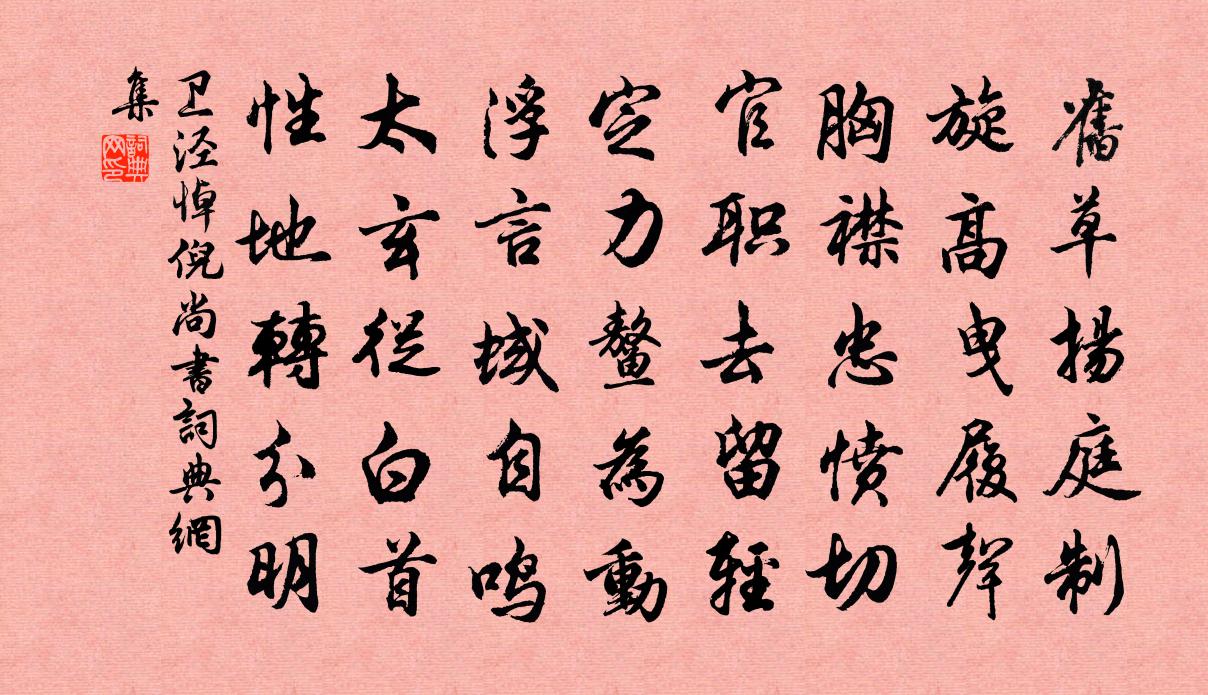 舊草揚庭制
旋高曳履聲
胸襟忠愤切
官职去留輕
定力鼇為動
浮言蜮自鸣
太玄從白首
性地轉分明
卫泾悼倪尚書詞典網
集
詞典網印